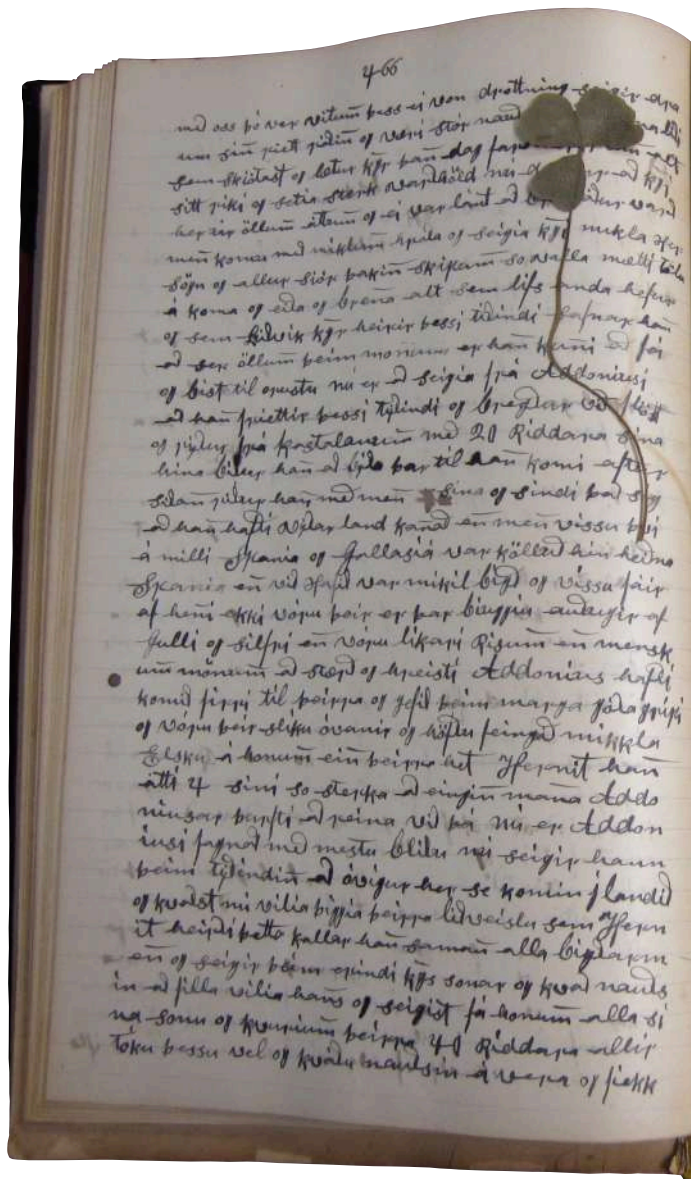 466
med oss þó ver vitum̄ þess ei von drottning seigir
um sin̄ riett ridin̄ og væri stór
sem skiótast og lætur kgr þan̄ dag alt
sitt riki og setia sterk vardhöld nú ad kgi
her öllum̄ og ei var lánt ad vard
men̄ koma med miklum̄ og seigia kgi mikla Her
sögn og allur siór þakin̄ skipum̄ so valla mætti tölu
á koma og eida og bren̄a alt sem lifs anda hefur
og sem Ludvik kgr heirir þessi tidindi safnar han̄
ad ser öllum̄ þeim mon̄um er han̄ kun̄i ad fá
og bist til orustu nú er ad seigia frá Addoniusi
ad han̄ friettir þessi tydindi og bregdur vid
og ridur frá kastalanum̄ med 20 Riddara sina
hina bidur han̄ ad bida þar til han̄ komi after
sidan̄ ridur han̄ med men̄ sina og sindi þad sig
ad han̄ hafdi vidar land kan̄ad en̄ men̄ vissu þvi
á milli Skania og Gallasiá var kölled hin heidna
Skania en̄ vid Hafid var mikil bigd og vissu fáir
af hen̄i ekki vóru þeir er þar biuggiu audugir af
Gulli og silfri en̄ vóru likari Risum̄ en̄ mensk
um̄ mön̄um ad stærd og hreisti Addonius hafdi
komid firri til þeirra og gefid þeim marga góda gripi
og vóru þeir sliku óvanir og höfdu feingid mikkla
Elsku á honum̄ ein̄ þeirra het Hernit han̄
átti 4 sini so sterka ad eingin̄ man̄a Addo
niusar þurfti ad reina vid þá Nú er Addon
iusi fagnad med mestu blidu nú seigir hann
þeim tidindin̄ ad óvigur her se komin i landid
og kvadst nú vilia þiggia þeirra lidveislu sem Hern
it heirdi þetta kallar han̄ saman̄ alla bigdarm
en̄ og seigir þeim erindi kgs sonar og kvad nauds
in ad filla vilia han̄s og seigist fá honum̄ alla si
na sonu og kvurium̄ þeirra 40 Riddara allir
tóku þessu vel og kvádu naudsin á vera og fiekk